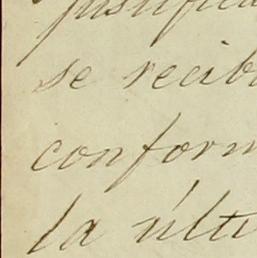 justifica
se recib
conform
la últi